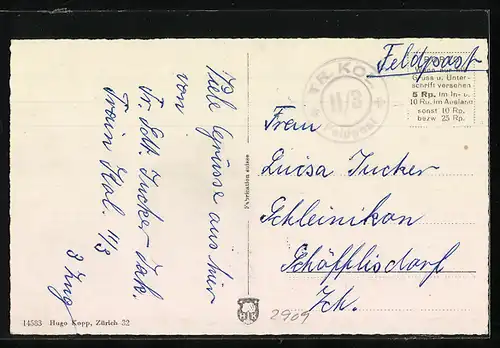 Liebe Grüsse aus hier
von
Tr. Sdt. Zucker Jak.
Train Kol. II/3
3 Zug
14583 Hugo Kopp, Zürich 32
Fabrication suisse
TR. KOL.
II/3
Feldpost
Feldpost
Gruss u. Unter-
schrift versehen
5 Rp. im In- u.
10 Rp. im Ausland
sonst 10 Rp.
bezw. 25 Rp.
Frau
Luisa Zucker
Schleinikon
Schöfflisdorf
Zch.
2909